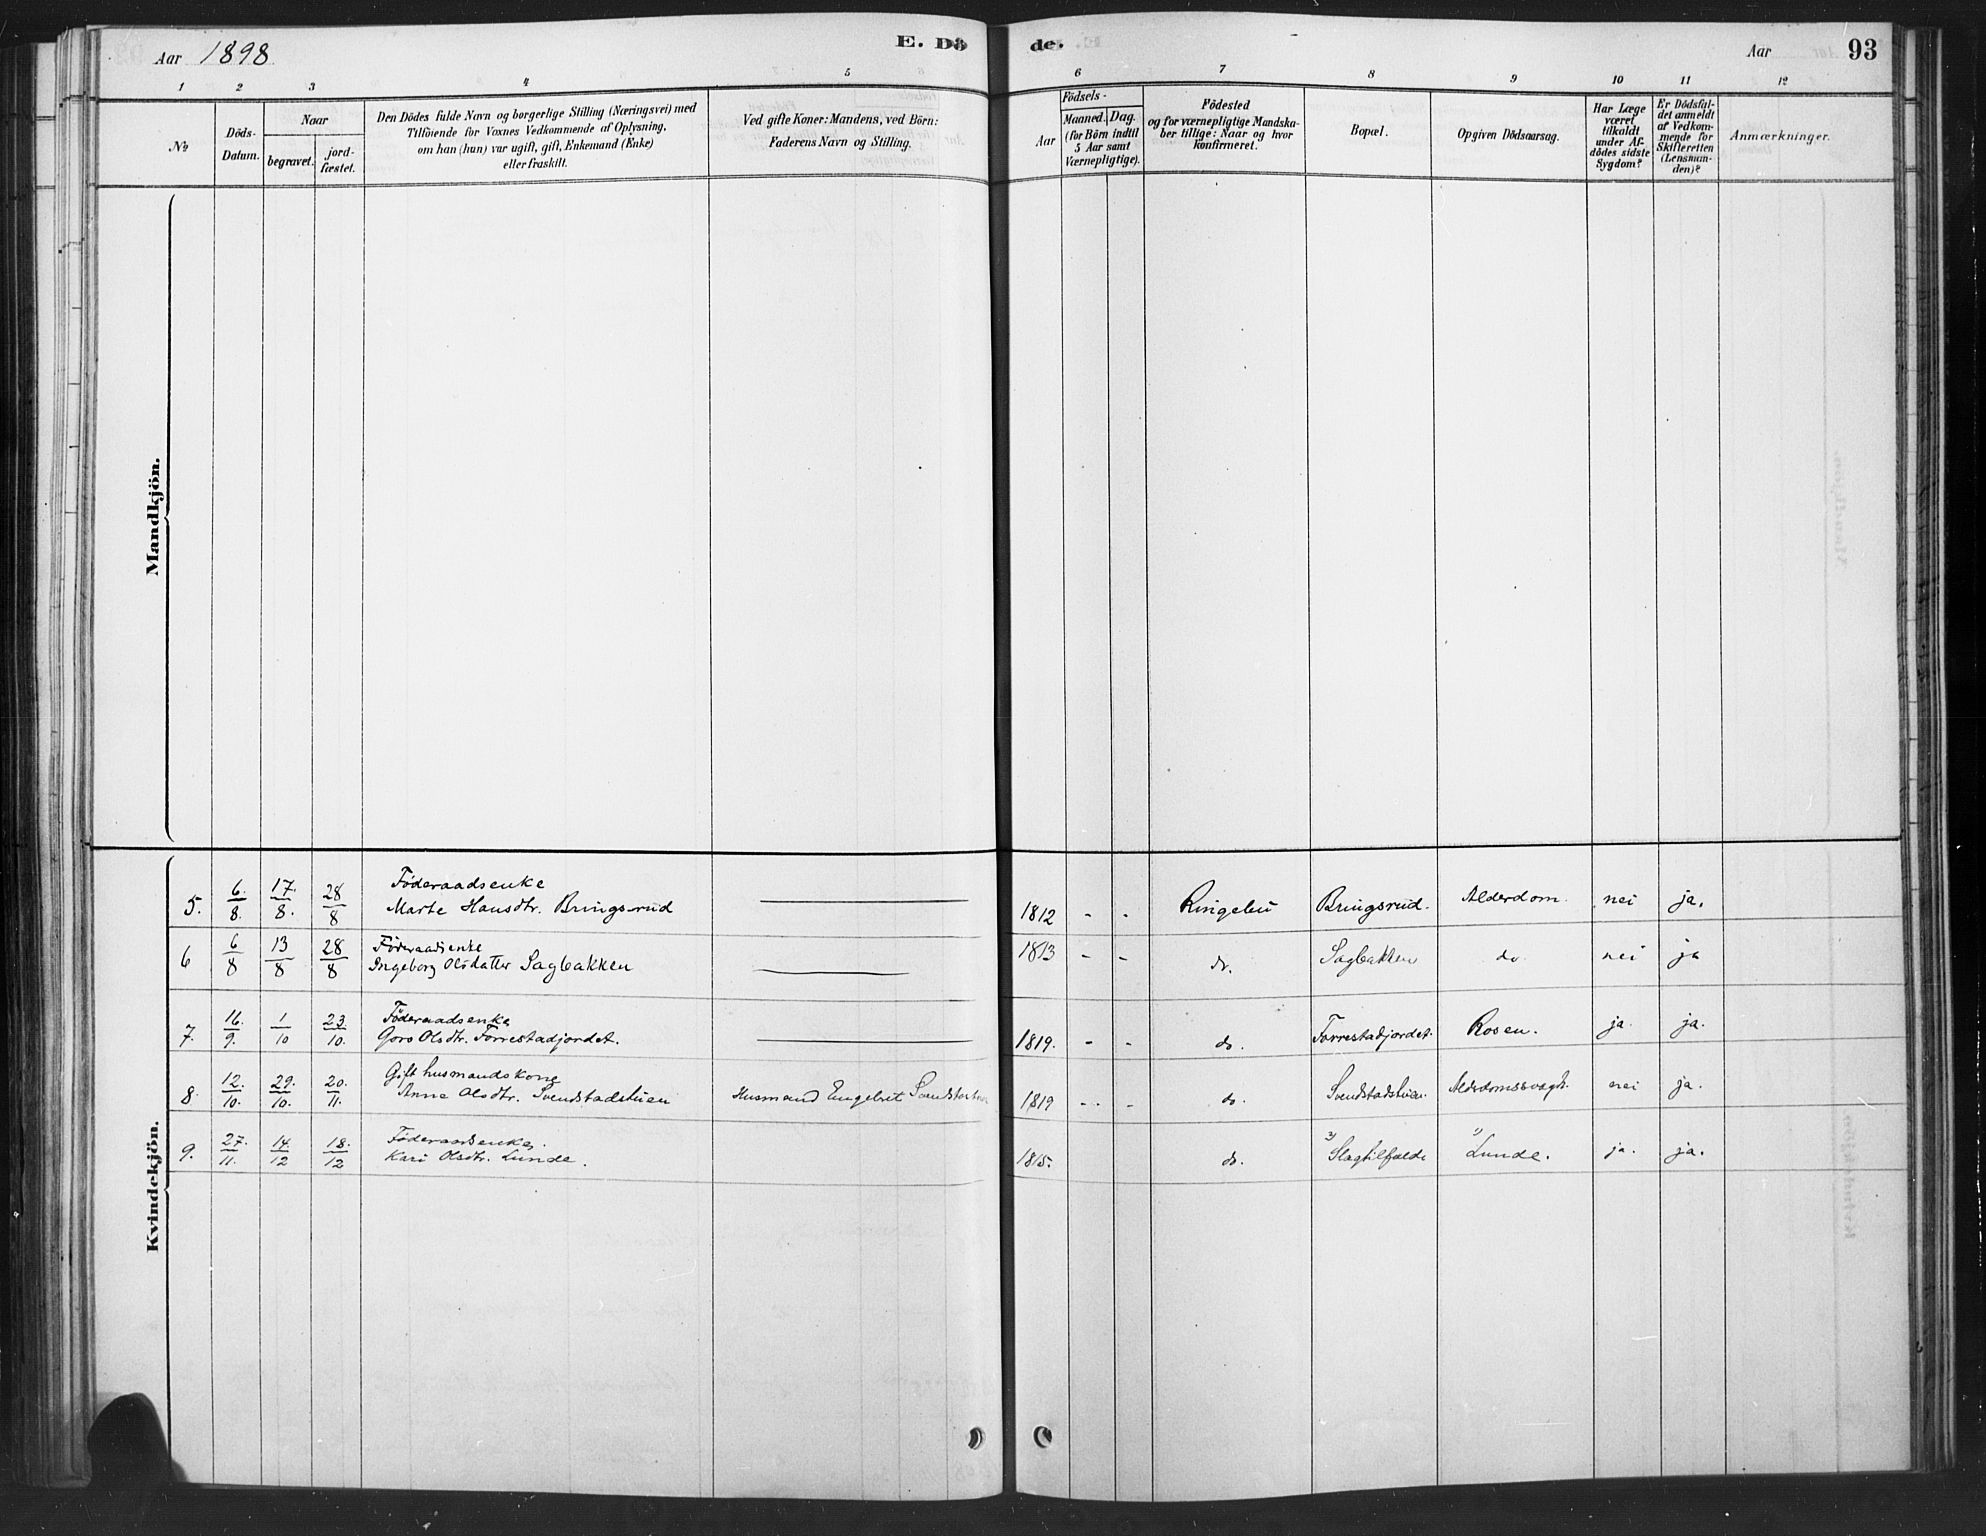 Aar 1898
E. Dö
de.
Aar
93
1 2 3 4 5 6 7 8 9 10 11 12
No
Döds-
Datum.
Naar
begravet.
jord-
fæstet.
Den Dödes fulde Navn og borgerlige Stilling (Næringsvei) med
Tilföiende for Voxnes Vedkommende af Oplysning,
om han (hun) var ugift, gift, Enkemand (Enke)
eller fraskilt.
Ved gifte Koner: Mandens, ved Börn:
Faderens Navn og Stilling.
Födsels-
Aar
Maaned.
Dag.
(for Börn indtil
5 Aar samt
Værnepligtige).
Födested
og for værnepligtige Mandska-
ber tillige: Naar og hvor
konfirmeret.
Bopæl.
Opgiven Dödsaarsag.
Har Læge
været
tilkaldt
under Af-
dödes sidste
Sygdom?
Er Dödsfal-
det anmeldt
af Vedkom-
mende for
Skifteretten
(Lensman-
den)?
Anmærkninger.
Mandkjön.
Kvindekjön.
5. 6/8. 17./8. 28/8 Föderaadsenke
Marte Hansdtr. Bringsrud
1812 - - Ringebu Bringsrud. Alderdom. nei ja.
6 6/8 13/8 28/8 Föderaadsenke
Ingeborg Olsdatter Sagbakken
1813 - - do. Sagbakken do nei ja
7. 16./9. 1/10 23/10. Föderaadsenke
Goro Olsdtr. Forrestadjordet.
1819. - - do. Forrestadjordet. Rosen. ja. ja.
8. 12./10. 29./10. 20./11. Gift husmandskone
Anne Olsdtr. Svendstadstuen Husmand Engebret
1819 - - - do. Svendstadstuen. Alderdomssvagh. nei ja.
9. 27./11. 14./12 18./12 Föderaadsenke.
Kari Olsdtr. Lunde.
1815. do. Slagtilfælde Lunde. ja. ja.